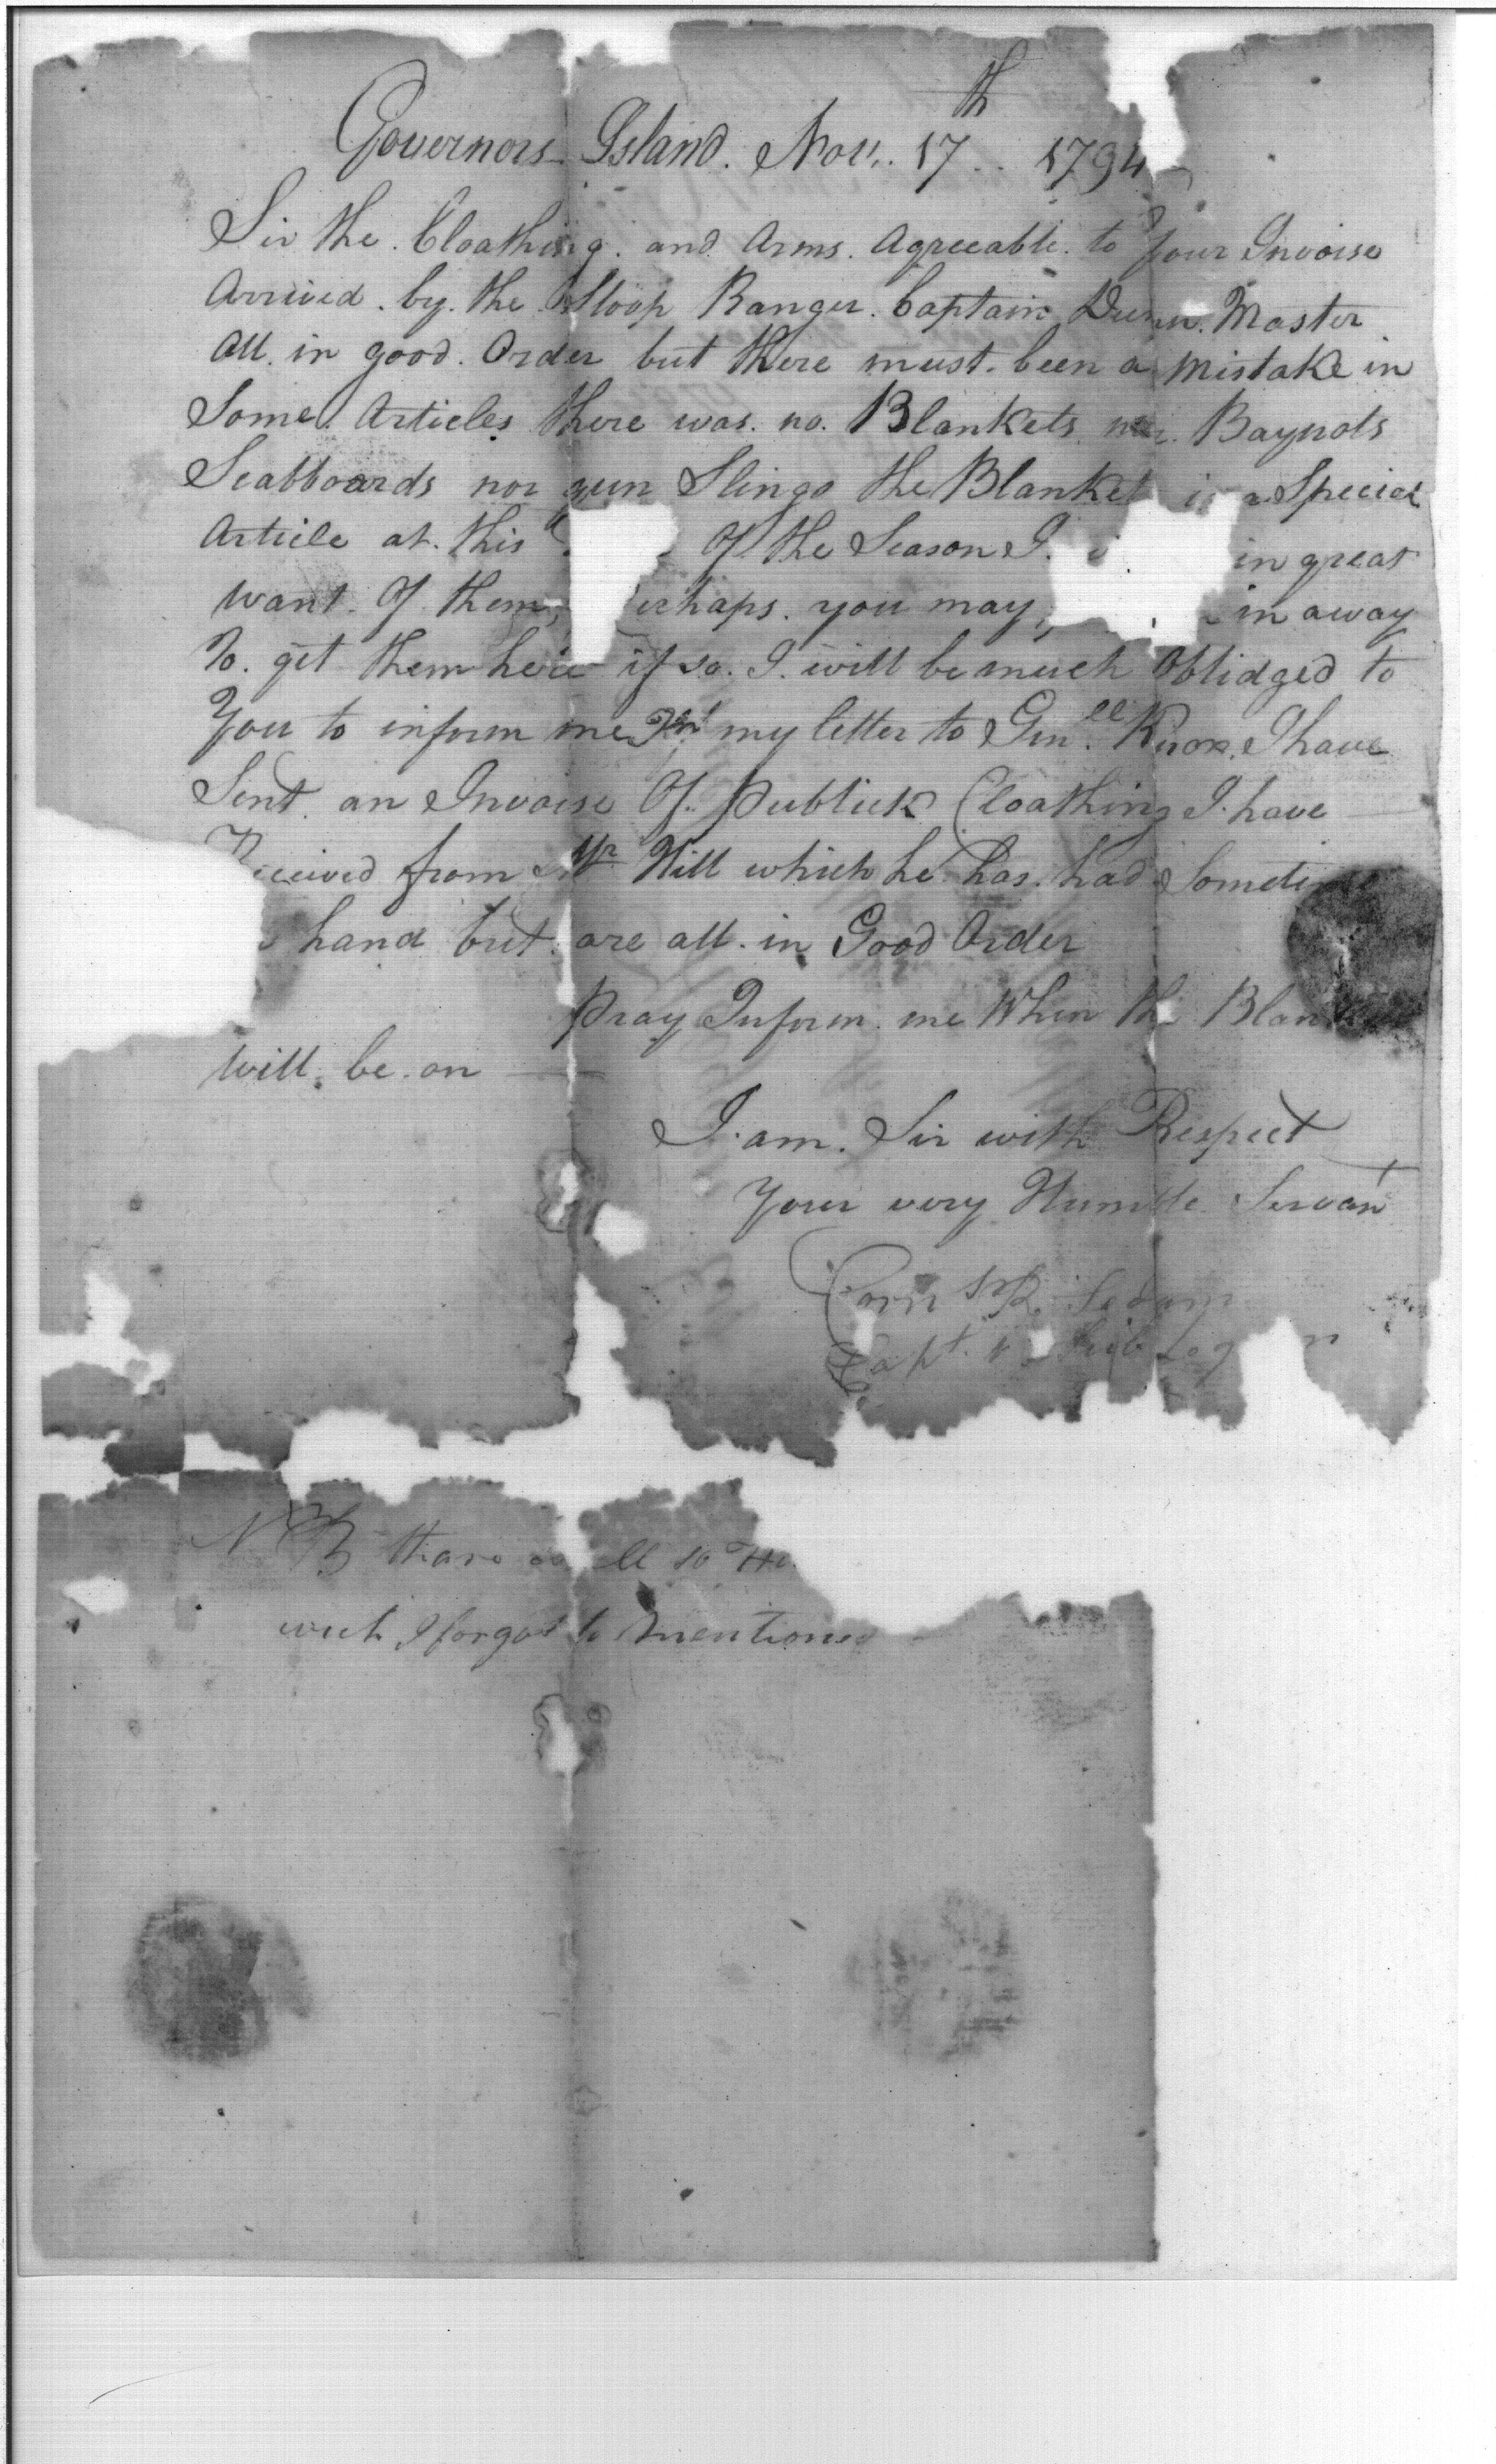 Governors Island. Nov. 17th 1794
Sir the Cloathing and Arms. Agreeable. to Your Invoise
Arrived. by. the Sloop Ranger. Captain Master
All. in good. Order but there must. been a mistake in
Some. Articles there was. no. Blankets nor. Baynots
Scabboards nor gun Slings the Blanket is a Special
Article at. this Of the Season I. in great
Want. Of them, perhaps. you may, in away
To. get them here if so. I. will be much Oblidged to
You to inform me In my letter to Genll. Knox. I have
Sent. an Invoise Of. Publick Cloathing I. have
Received from Mr Hill which he. has. had Sometime
hand but are all. in Good Order
Pray Inform. me When the Blankets
Will. be. on
I. am. Sir with Respect
Your very Humble Servant
Corns R. Sedam
Capt. Sub Legion
N B thare
wich I forgot to mention